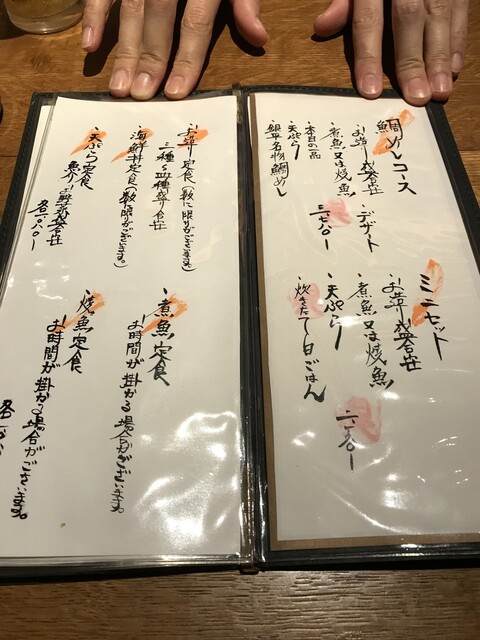 鯛めしコース
・お造り盛合せ
・煮魚又は焼魚
・本日の一品
・天ぷら
・銀平名物鯛めし
・デザート
ミニセット
・お造り盛合せ
・煮魚又は焼魚
・天ぷら
・炊きたて白ごはん
・お造り定食(数に限りがございます)
三種盛り合せ
・海鮮丼定食(数に限りがございます。)
・天ぷら定食
・煮魚定食
お時間が掛かる場合がございます。
・焼魚定食
お時間が掛かる場合がございます。